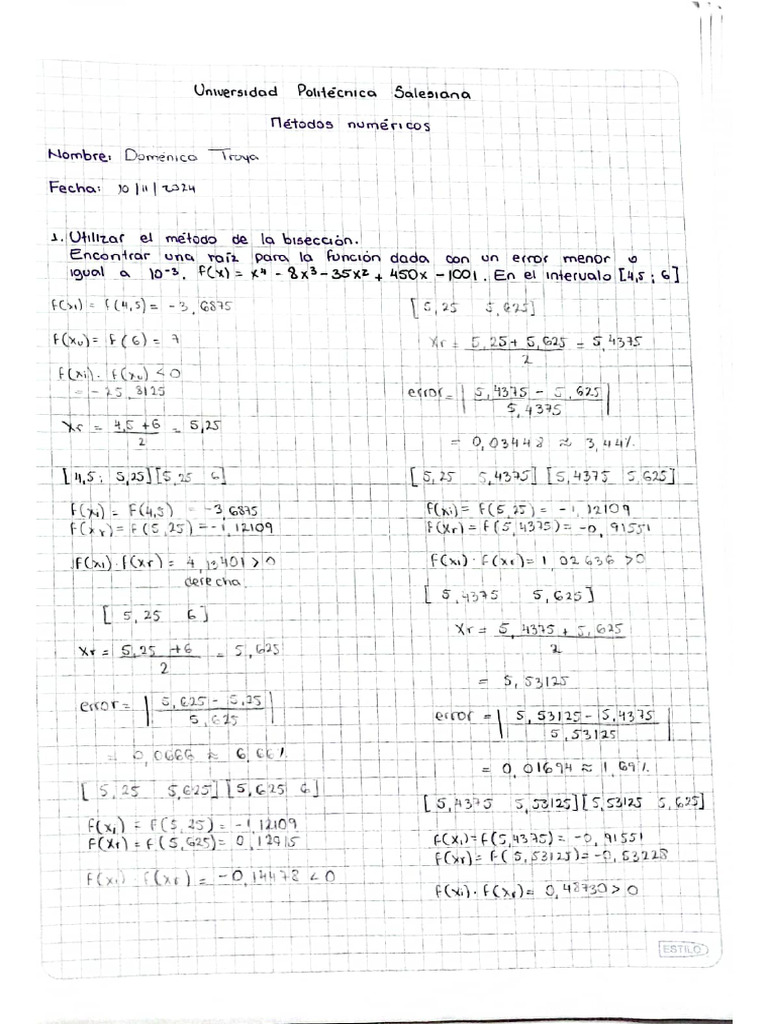 Universidad Politécnica Salesiana
Métodos numéricos
Nombre: Doménica Troya
Fecha: 10/11/2024
1. Utilizar el método de la bisección.
Encontrar una raíz para la función dada con un error menor o
igual a 10⁻³. f(x) = x⁴ - 8x³ - 35x² + 450x - 1001. En el intervalo [4,5 ; 6]
f(xi) = f(4,5) = -3,6875
f(xu) = f(6) = 7
f(xi) . f(xu) < 0
= -25,8125
xr = 4,5 + 6 / 2 = 5,25
[4,5 ; 5,25] [5,25 6]
f(xi) = f(4,5) = -3,6875
f(xr) = f(5,25) = -1,12109
f(xi) . f(xr) = 4,13401 > 0
derecha
[5,25 6]
xr = 5,25 + 6 / 2 = 5,625
error = | 5,625 - 5,25 / 5,625 |
= 0,0666 ≈ 6,66%
[5,25 5,625] [5,625 6]
f(xi) = f(5,25) = -1,12109
f(xr) = f(5,625) = 0,12915
f(xi) . f(xr) = -0,14478 < 0
[5,25 5,625]
xr = 5,25 + 5,625 / 2 = 5,4375
error = | 5,4375 - 5,625 / 5,4375 |
= 0,03448 ≈ 3,44%
[5,25 5,4375] [5,4375 5,625]
f(xi) = f(5,25) = -1,12109
f(xr) = f(5,4375) = -0,91551
f(xi) . f(xr) = 1,02636 > 0
[5,4375 5,625]
xr = 5,4375 + 5,625 / 2
= 5,53125
error = | 5,53125 - 5,4375 / 5,53125 |
= 0,01694 ≈ 1,69%
[5,4375 5,53125] [5,53125 5,625]
f(xi) = f(5,4375) = -0,91551
f(xr) = f(5,53125) = -0,53228
f(xi) . f(xr) = 0,48730 > 0
ESTILO